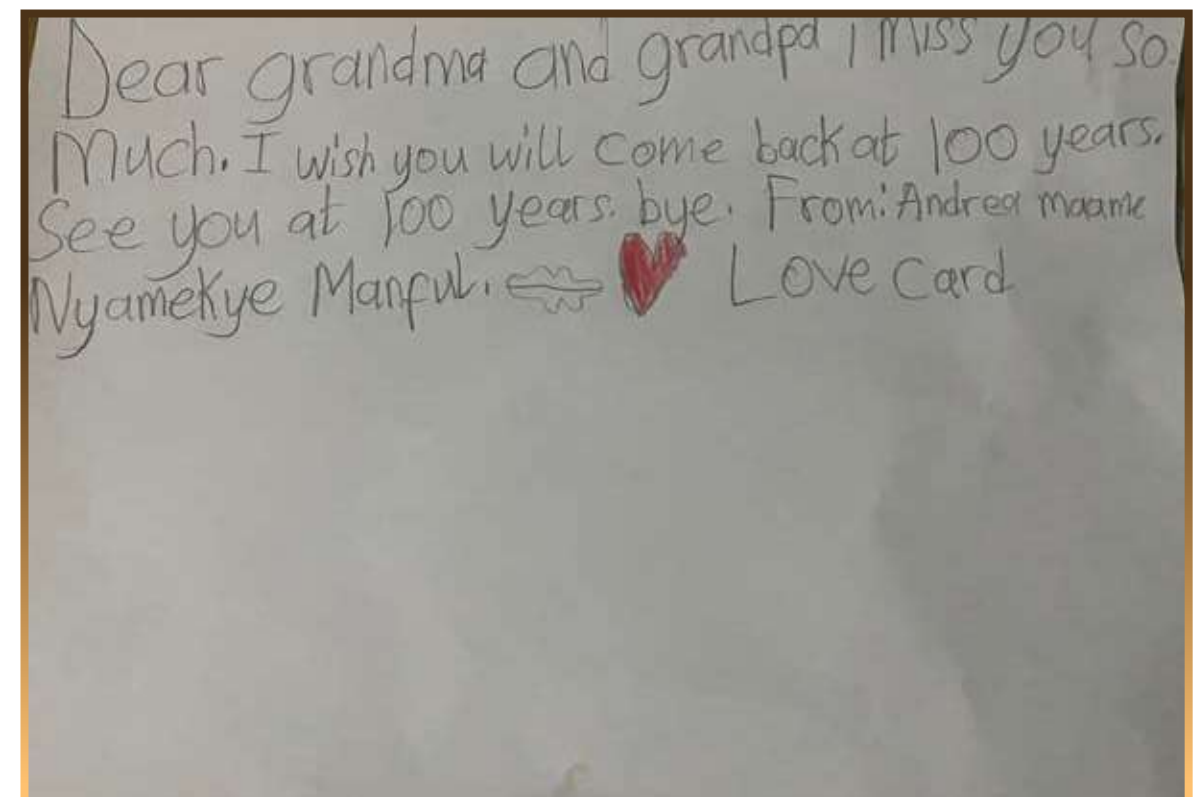 Dear grandma and grandpa I miss you so
Much. I wish you will come back at 100 years.
See you at 100 years. bye. From: Andrea maame
Nyamekye Manful. Love Card